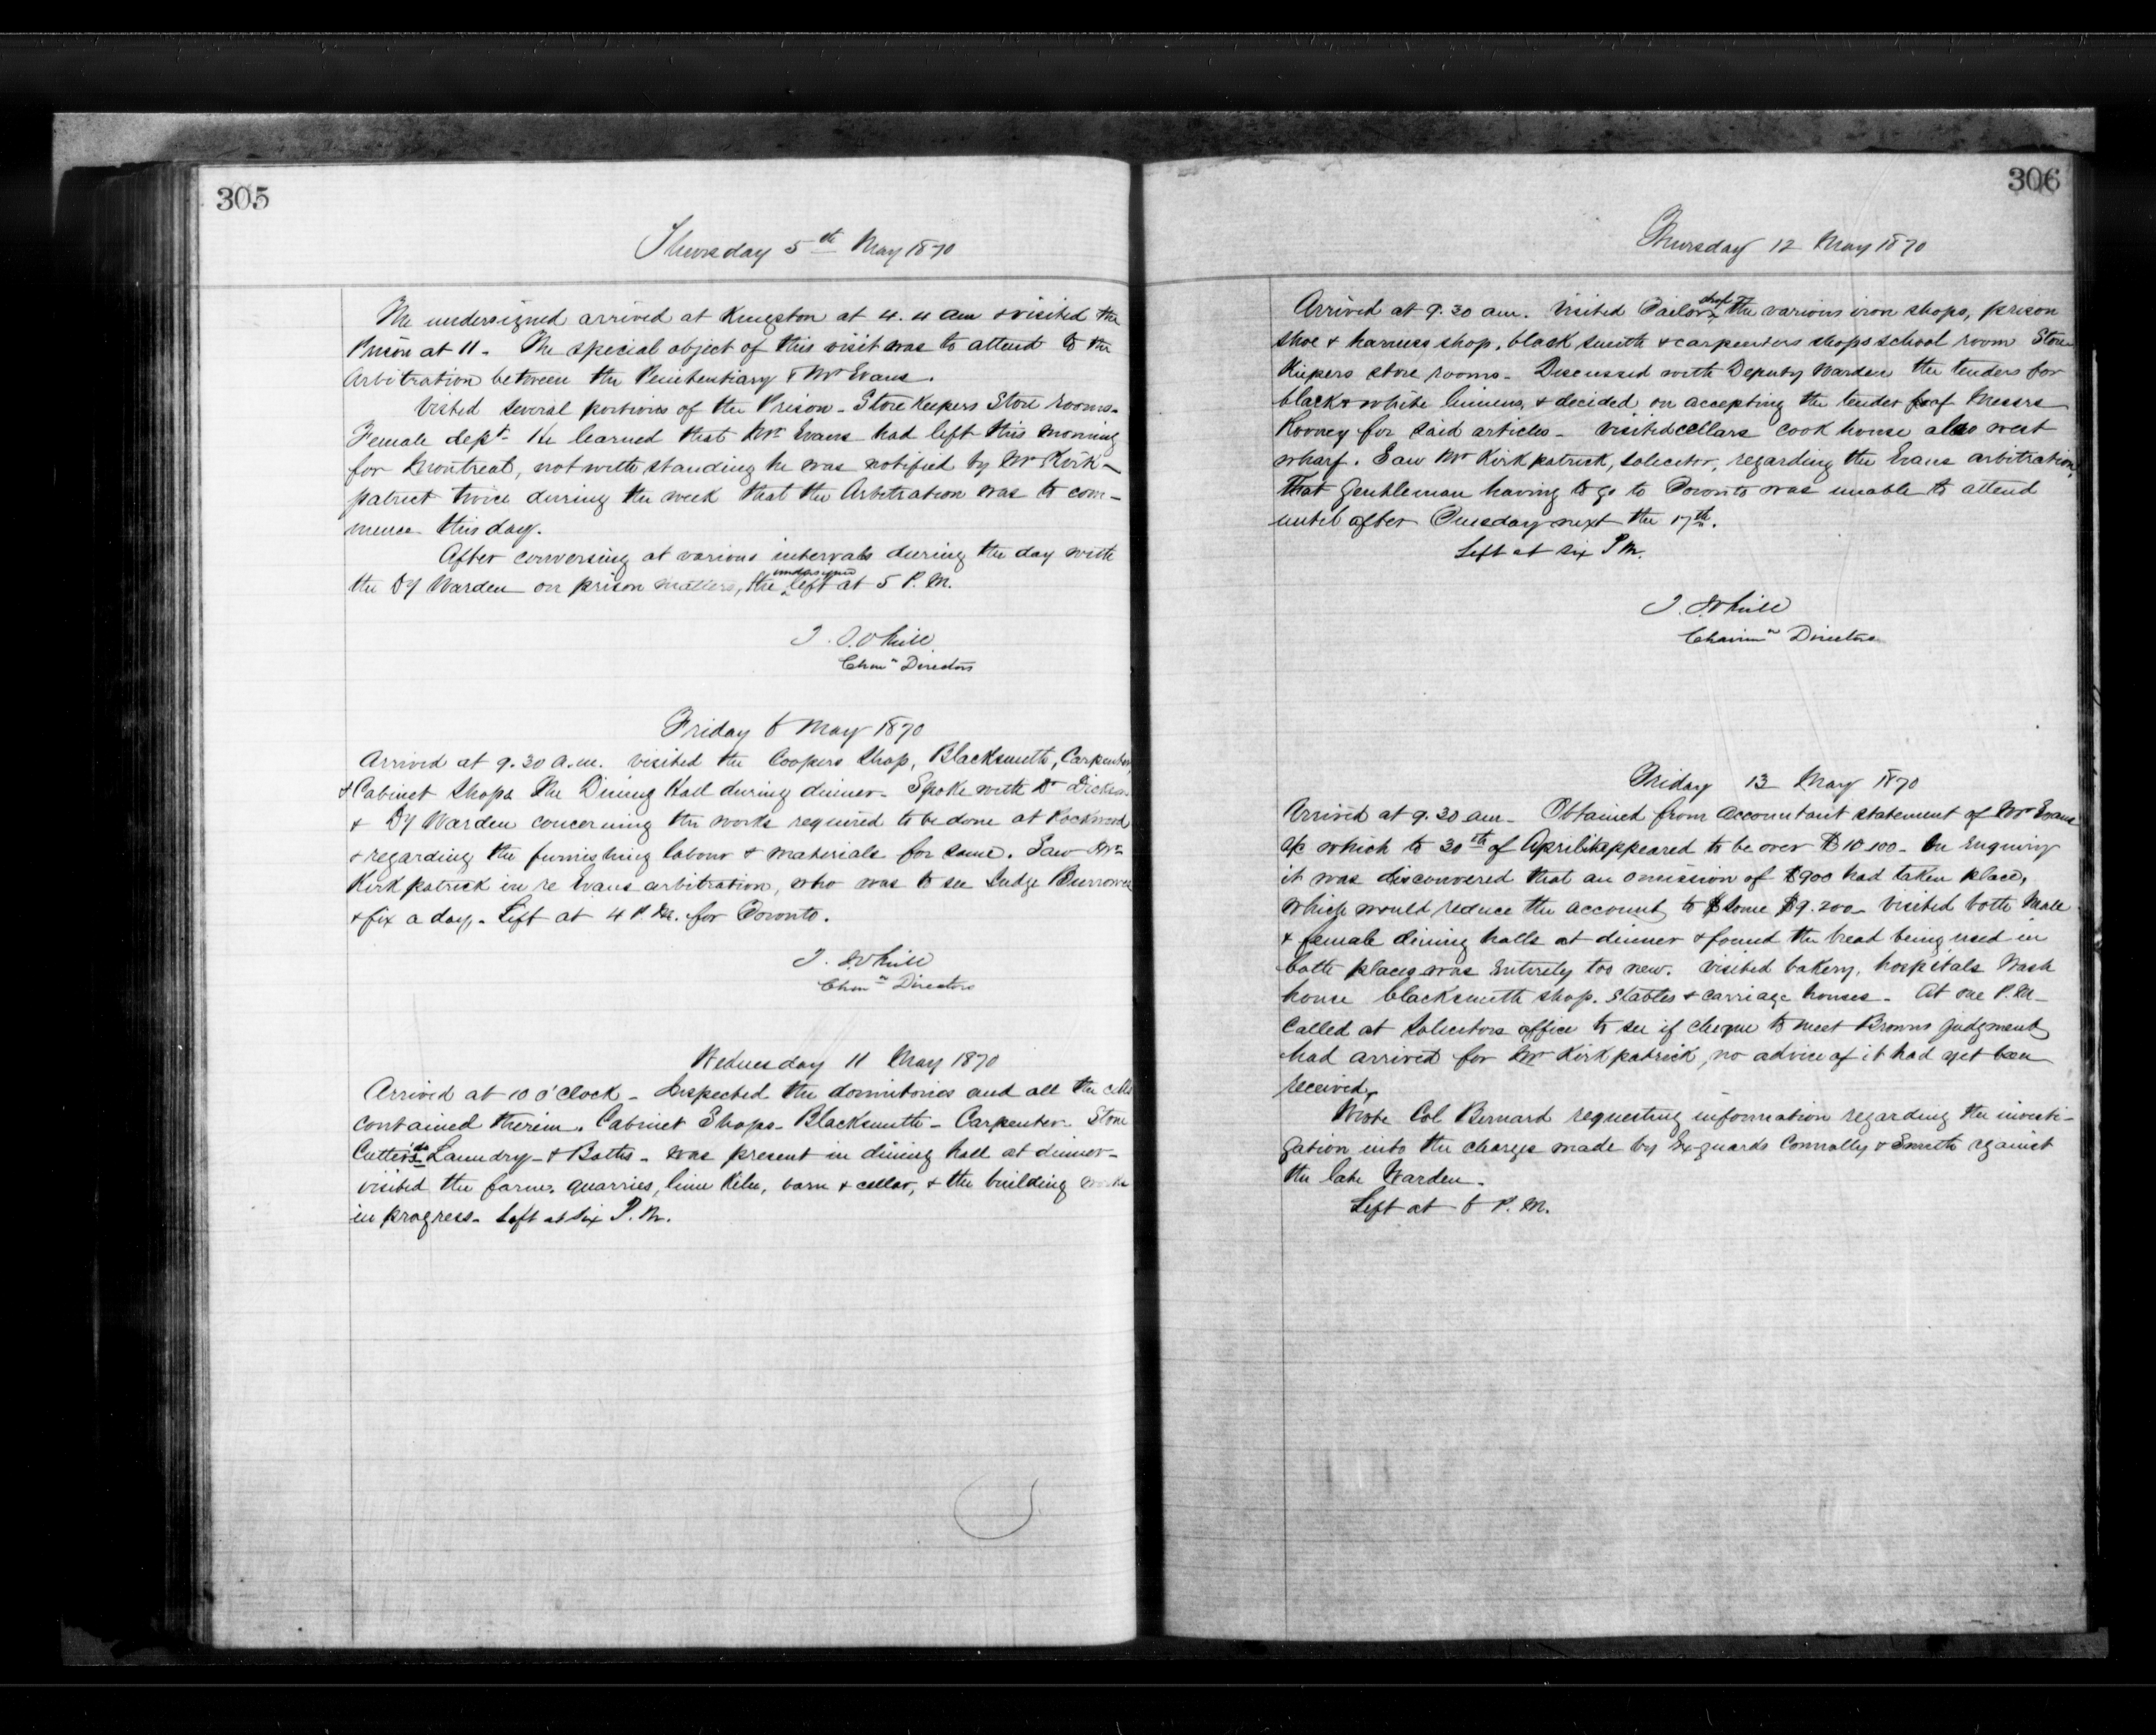 305
Thursday 5th May 1870
The undersigned arrived at Kingston at 4. 4 am & visited the
Prison at 11 - The special object of this visit was to attend to the
Arbitration between the Penitentiary & Mr Evans.
Visted several portions of the Prison - Store Keepers Store rooms -
Female dept - He learned that Mr Evans had left this morning
for Montreal, notwithstanding he was notified by Mr Kirk-
patrick twice during the week that the Arbitration was to com-
mence this day.
After conversing at various intervals during the day with
the Dy Warden on prison matters, the undersigned left at 5 P.M.
Chmn Directors
Friday 6 May 1870
Arrived at 9.30 a.m. visited the Coopers Shop, Blacksmith, Carpenter,
& Cabinet Shops The Dining Hall during dinner - Spoke with Dr Dickson
& Dy Warden concerning the works required to be done at Rockwood
& regarding the furnishing labour & materials for same. Saw Mr
Kirkpatrick in re Evans arbitration, who was to see Judge Burrowes
& fix a day. Left at 4 P.M. for Toronto.
Chmn Directors
Wednesday 11 May 1870
Arrived at 10 o'clock - Inspected the dormitories and all the cells
contained therein. Cabinet Shops - Blacksmith - Carpenter - Stone
Cutter's do Laundry - & Baths - was present in dining hall at dinner -
visited the farm, quarries, lime Kiln, barn & cellar, & the building works
in progress - Left at six P.M.
306
Thursday 12 May 1870
Arrived at 9.30 am. Visited Tailor shop the various iron shops, prison
shoe & harness shop, black smith & carpenters shops school room Store
Keepers store rooms - Discussed with Deputy Warden the tenders for
black & white linens, & decided on accepting the tender of Messrs
Rooney for said articles - visited cellars cook house also west
wharf. Saw Mr Kirkpatrick, solicitor, regarding the Evans arbitration,
that gentleman having to go to Toronto was unable to attend
until after Tuesday next the 17th.
Left at six P M.
Chairmn Directors
Friday 13 May 1870
Arrived at 9.30 am - Obtained from Accountant statement of Mr Evans
a/c which to 30th of April it appeared to be over $10.100 - On Enquiry
it was disconvered that an omission of $900 had taken place,
which would reduce the account to some $9.200 - Visited both Male
& female dining halls at dinner & found the bread being used in
both places was Entirely too new. Visited bakery, hospitals Wash
house blacksmith shop. Stables & carriage houses - At one P.M -
Called at Solicitors office to see if cheque to meet Browns judgment
had arrived for Mr Kirkpatrick, no advice of it had yet been
received.
Wrote Col Bernard requesting information regarding the investi-
gation into the charges made by Ex-guards Connolly & Smith against
the late Warden.
Left at 6 P.M.